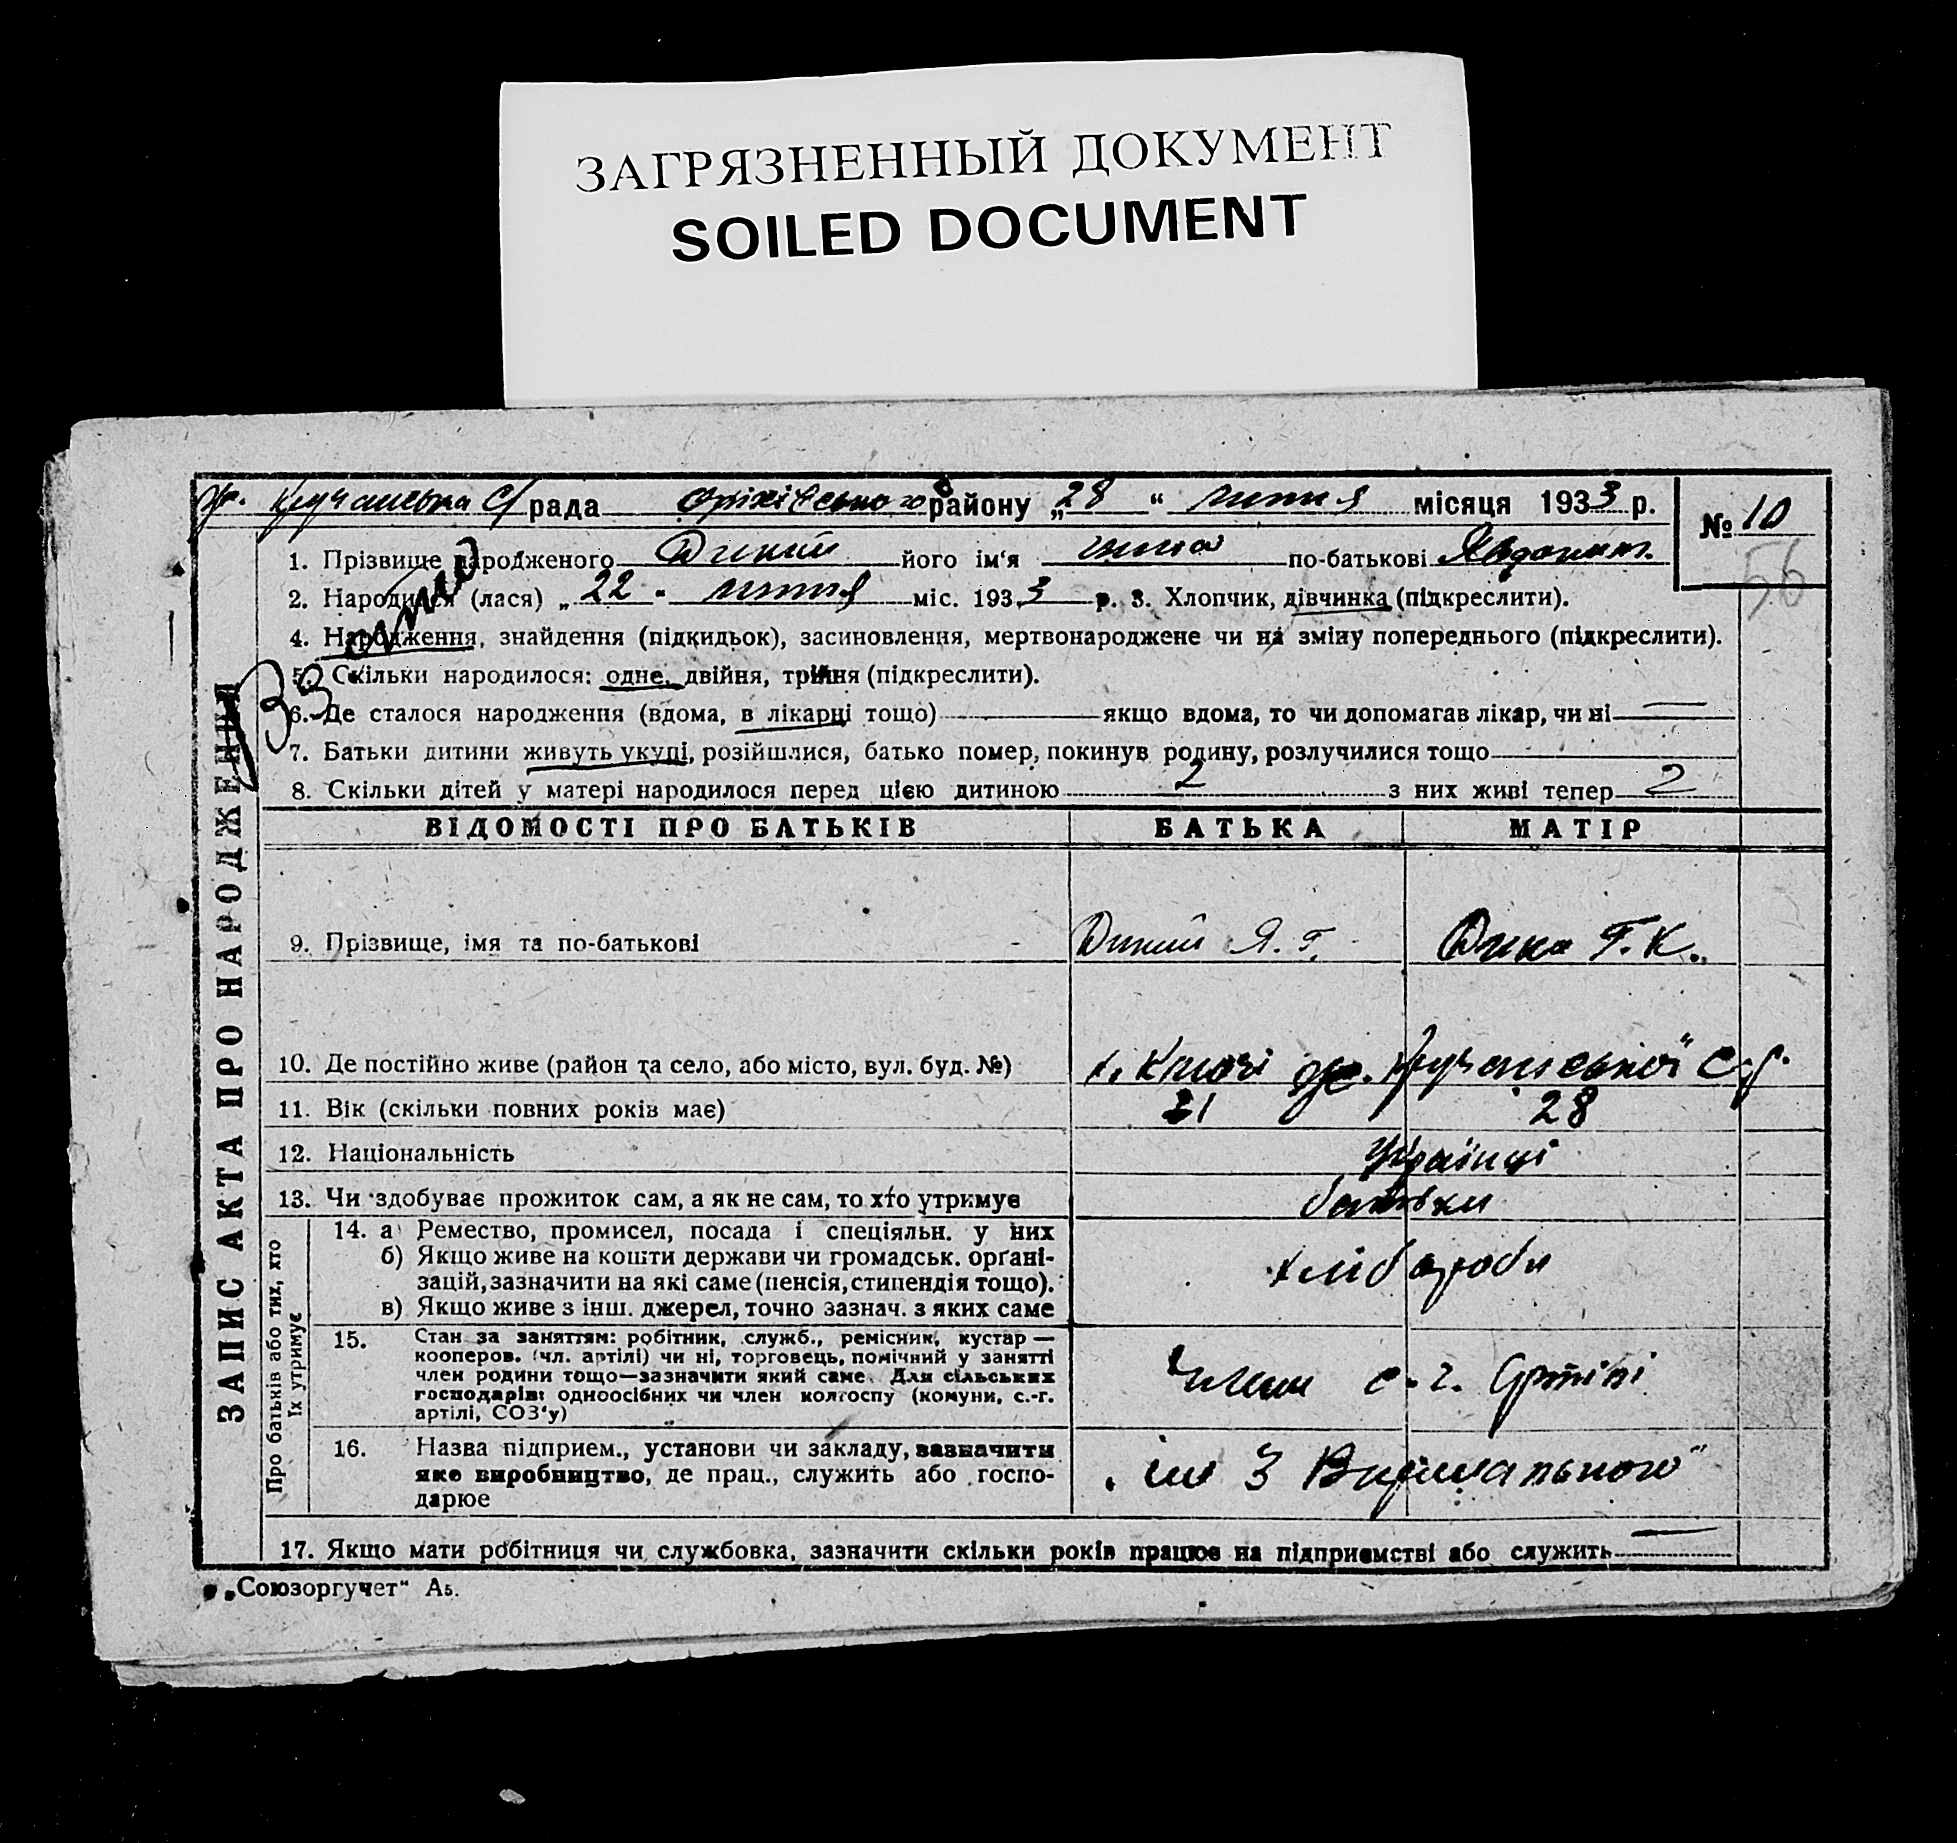 ЗАГРЯЗНЕННЫЙ ДОКУМЕНТ
SOILED DOCUMENT
рада районну „28“ липня місяця 1933 р.
№ 10
56
1. Прізвище народженого Дикий його ім‘я по-батькові
2. Народився (лася) „22 „ липня міс. 1933 р. 3. Хлопчик, дівчинка (підкреслити).
4. Народження, знайдення (підкидьок), засиновлення, мертвонароджене чи на зміну попереднього (підкреслити).
5. Скільки народилося: одне, двійня, трійня (підкреслити).
6. Де сталося народження (вдома, в лікарці тощо) — якщо вдома, то чи допомагав лікар, чи ні —
7. Батьки дитини живуть укупі, розійшлися, батько помер, покинув родину, розлучилися тощо
8. Скільки дітей у матері народилося перед цією дитиною 2 з них живі тепер 2
ЗАПИС АКТА ПРО НАРОДЖЕННЯ
ВІДОМОСТІ ПРО БАТЬКІВ БАТЬКА МАТІР
9. Прізвище, імя та по-батькові Дикий Я. Г. Дика Г. К.
10. Де постійно живе (район та село, або місто, вул. буд. №)
11. Вік (скільки повних років має) 28
12. Національність Українці
13. Чи здобуває прожиток сам, а як не сам, то хто утримує батьки
Про батьків або тих, хто їх утримує
14. а) Ремество, промисел, посада і спеціяльн. у них
б) Якщо живе на кошти держави чи громадськ. орґані-
зацій, зазначити на які саме (пенсія, стипендія тощо).
в) Якщо живе з інш. джерел, точно зазнач. з яких саме
хлібороби
15. Стан за заняттям: робітник, служб., ремісник, кустар —
кооперов. (чл. артілі) чи ні, торговець, помічний у занятті
член родини тощо—зазначити який саме. Для сільських
господарів: одноосібних чи член колгоспу (комуни, с.-г.
артілі, СОЗ‘у)
члени с.-г. Артілі
16. Назва підприєм., установи чи закладу, зазначити
яке виробництво, де прац., служить або госпо-
дарює
ім 3 Вирішального"
17. Якщо мати робітниця чи службовка, зазначити скільки років працює на підприємстві або служить —
„Союзоргучет“ Аь.